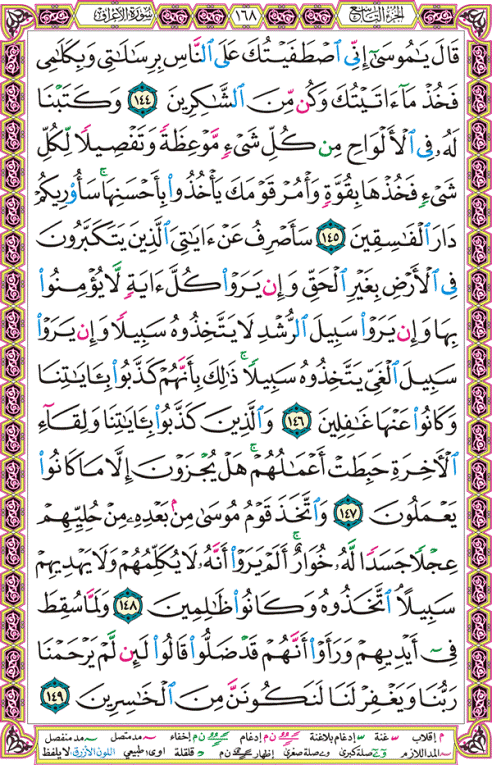 الجزء التاسع ١٦٨ سورة الأعراف
قَالَ يَٰمُوسَىٰٓ إِنِّى ٱصۡطَفَيۡتُكَ عَلَى ٱلنَّاسِ بِرِسَٰلَٰتِى وَبِكَلَٰمِى
فَخُذۡ مَآ ءَاتَيۡتُكَ وَكُن مِّنَ ٱلشَّٰكِرِينَ ١٤٤ وَكَتَبۡنَا
لَهُۥ فِى ٱلۡأَلۡوَاحِ مِن كُلِّ شَىۡءٖ مَّوۡعِظَةٗ وَتَفۡصِيلٗا لِّكُلِّ
شَىۡءٖ فَخُذۡهَا بِقُوَّةٖ وَأۡمُرۡ قَوۡمَكَ يَأۡخُذُواْ بِأَحۡسَنِهَاۚ سَأُوْرِيكُمۡ
دَارَ ٱلۡفَٰسِقِينَ ١٤٥ سَأَصۡرِفُ عَنۡ ءَايَٰتِىَ ٱلَّذِينَ يَتَكَبَّرُونَ
فِى ٱلۡأَرۡضِ بِغَيۡرِ ٱلۡحَقِّ وَإِن يَرَوۡاْ كُلَّ ءَايَةٖ لَّا يُؤۡمِنُواْ
بِهَا وَإِن يَرَوۡاْ سَبِيلَ ٱلرُّشۡدِ لَا يَتَّخِذُوهُ سَبِيلٗا وَإِن يَرَوۡاْ
سَبِيلَ ٱلۡغَىِّ يَتَّخِذُوهُ سَبِيلٗاۚ ذَٰلِكَ بِأَنَّهُمۡ كَذَّبُواْ بِـَٔايَٰتِنَا
وَكَانُواْ عَنۡهَا غَٰفِلِينَ ١٤٦ وَٱلَّذِينَ كَذَّبُواْ بِـَٔايَٰتِنَا وَلِقَآءِ
ٱلۡأٓخِرَةِ حَبِطَتۡ أَعۡمَٰلُهُمۡۚ هَلۡ يُجۡزَوۡنَ إِلَّا مَا كَانُواْ
يَعۡمَلُونَ ١٤٧ وَٱتَّخَذَ قَوۡمُ مُوسَىٰ مِنۢ بَعۡدِهِۦ مِنۡ حُلِيِّهِمۡ
عِجۡلٗا جَسَدٗا لَّهُۥ خُوَارٌۚ أَلَمۡ يَرَوۡاْ أَنَّهُۥ لَا يُكَلِّمُهُمۡ وَلَا يَهۡدِيهِمۡ
سَبِيلًاۘ ٱتَّخَذُوهُ وَكَانُواْ ظَٰلِمِينَ ١٤٨ وَلَمَّا سُقِطَ
فِىٓ أَيۡدِيهِمۡ وَرَأَوۡاْ أَنَّهُمۡ قَدۡ ضَلُّواْ قَالُواْ لَئِن لَّمۡ يَرۡحَمۡنَا
رَبُّنَا وَيَغۡفِرۡ لَنَا لَنَكُونَنَّ مِنَ ٱلۡخَٰسِرِينَ ١٤٩
م إقلاب غنة إدغام بلاغنة ن م إدغام ن م إخفاء مد متصل مد منفصل
المد اللازم صلة كبرى صلة صغرى إظهار ن م قلقلة اوى طبيعي اللون الأزرق لا يلفظ